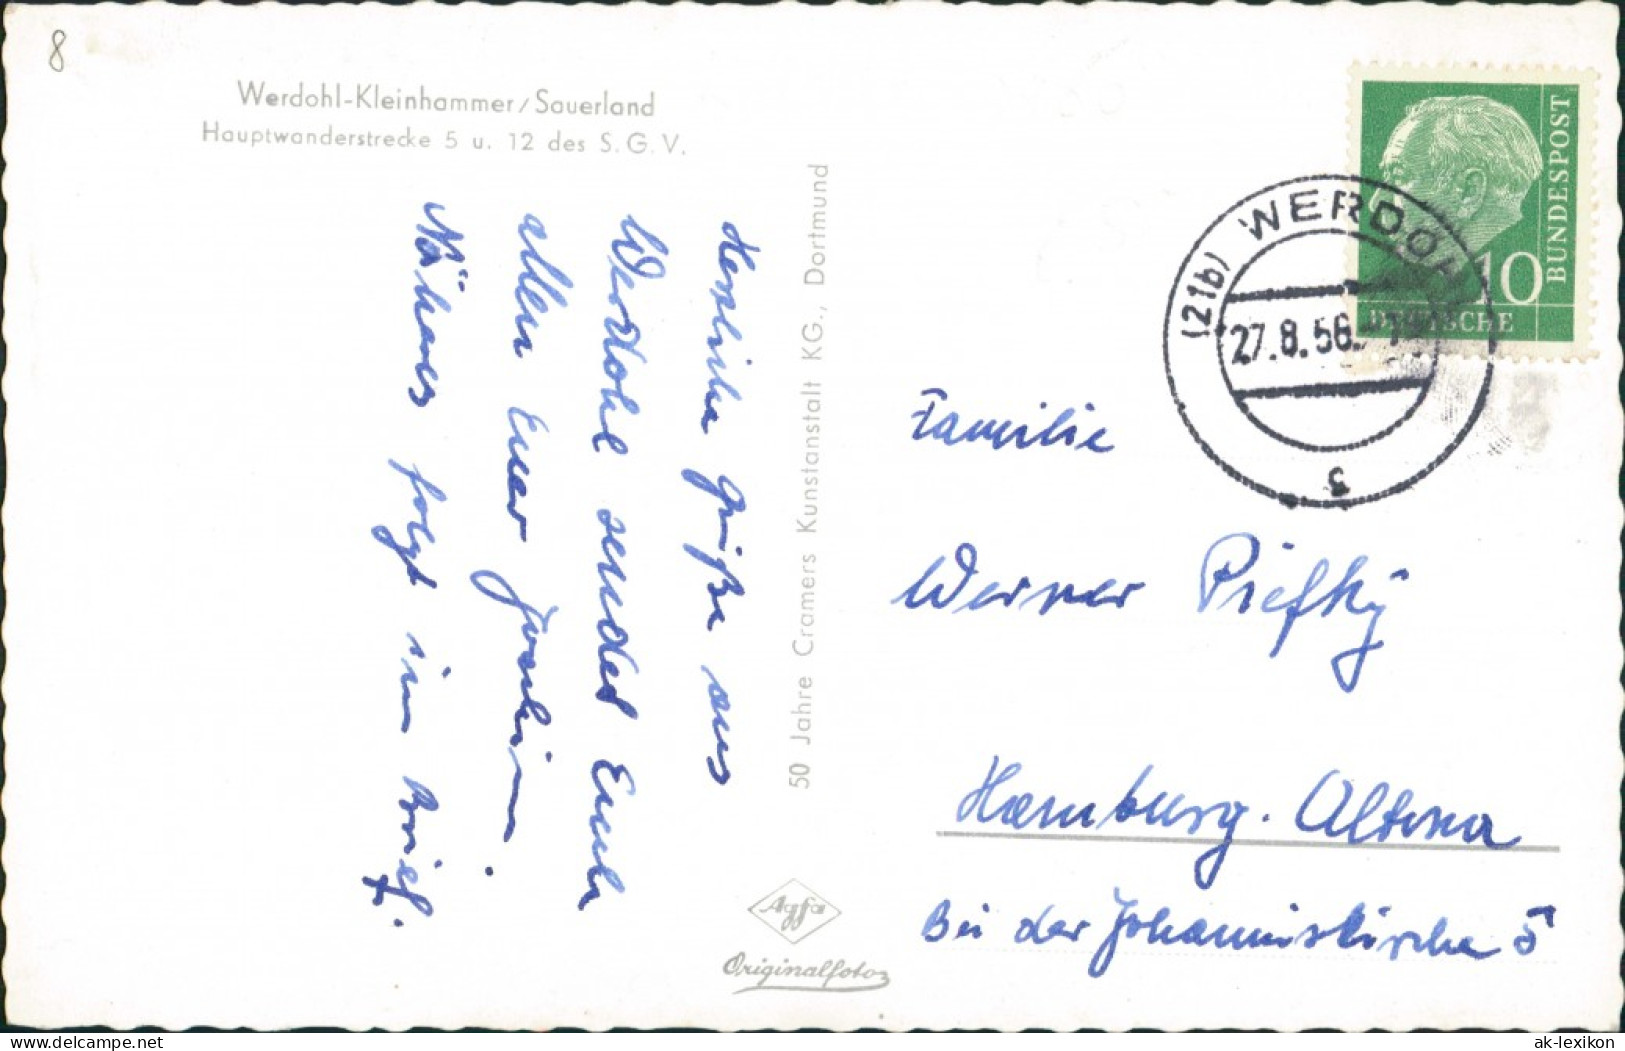 8
Werdohl-Kleinhammer/Sauerland
Hauptwanderstrecke 5 u. 12 des S.G.V.
Herzliche Grüße aus
Werdohl sendet Euch
allen Euer Joachim.
Näheres folgt im Brief.
50 Jahre Cramers Kunstanstalt KG., Dortmund
Agfa
Originalfoto
10
BUNDESPOST
DEUTSCHE
(21b) WERDOHL
27.8.56.
Familie
Werner
Hamburg-Altona
Bei der Johanniskirche 5
hippostcard.com
ak-lexikon